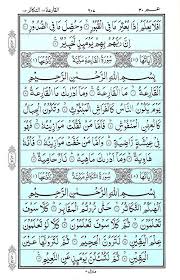 عم ٣٠
أَفَلَا يَعْلَمُ إِذَا بُعْثِرَ مَا فِي الْقُبُورِ وَحُصِّلَ مَا فِي الصُّدُورِ
إِنَّ رَبَّهُمْ بِهِمْ يَوْمَئِذٍ لَخَبِيرٌ
سُورَةُ الْقَارِعَةِ مَكِّيَّةٌ
بِسْمِ اللَّهِ الرَّحْمٰنِ الرَّحِيمِ
الْقَارِعَةُ مَا الْقَارِعَةُ وَمَا أَدْرٰىكَ مَا الْقَارِعَةُ يَوْمَ
يَكُونُ النَّاسُ كَالْفَرَاشِ الْمَبْثُوثِ وَتَكُونُ الْجِبَالُ كَالْعِهْنِ
الْمَنْفُوشِ فَأَمَّا مَنْ ثَقُلَتْ مَوَازِينُهُ فَهُوَ
فِي عِيشَةٍ رَاضِيَةٍ وَأَمَّا مَنْ خَفَّتْ مَوَازِينُهُ فَأُمُّهُ
هَاوِيَةٌ وَمَا أَدْرٰىكَ مَا هِيَهْ نَارٌ حَامِيَةٌ
سُورَةُ التَّكَاثُرِ مَكِّيَّةٌ
بِسْمِ اللَّهِ الرَّحْمٰنِ الرَّحِيمِ
أَلْهٰىكُمُ التَّكَاثُرُ حَتَّىٰ زُرْتُمُ الْمَقَابِرَ كَلَّا سَوْفَ تَعْلَمُونَ
ثُمَّ كَلَّا سَوْفَ تَعْلَمُونَ كَلَّا لَوْ تَعْلَمُونَ عِلْمَ
الْيَقِينِ لَتَرَوُنَّ الْجَحِيمَ ثُمَّ لَتَرَوُنَّهَا عَيْنَ
الْيَقِينِ ثُمَّ لَتُسْأَلُنَّ يَوْمَئِذٍ عَنِ النَّعِيمِ